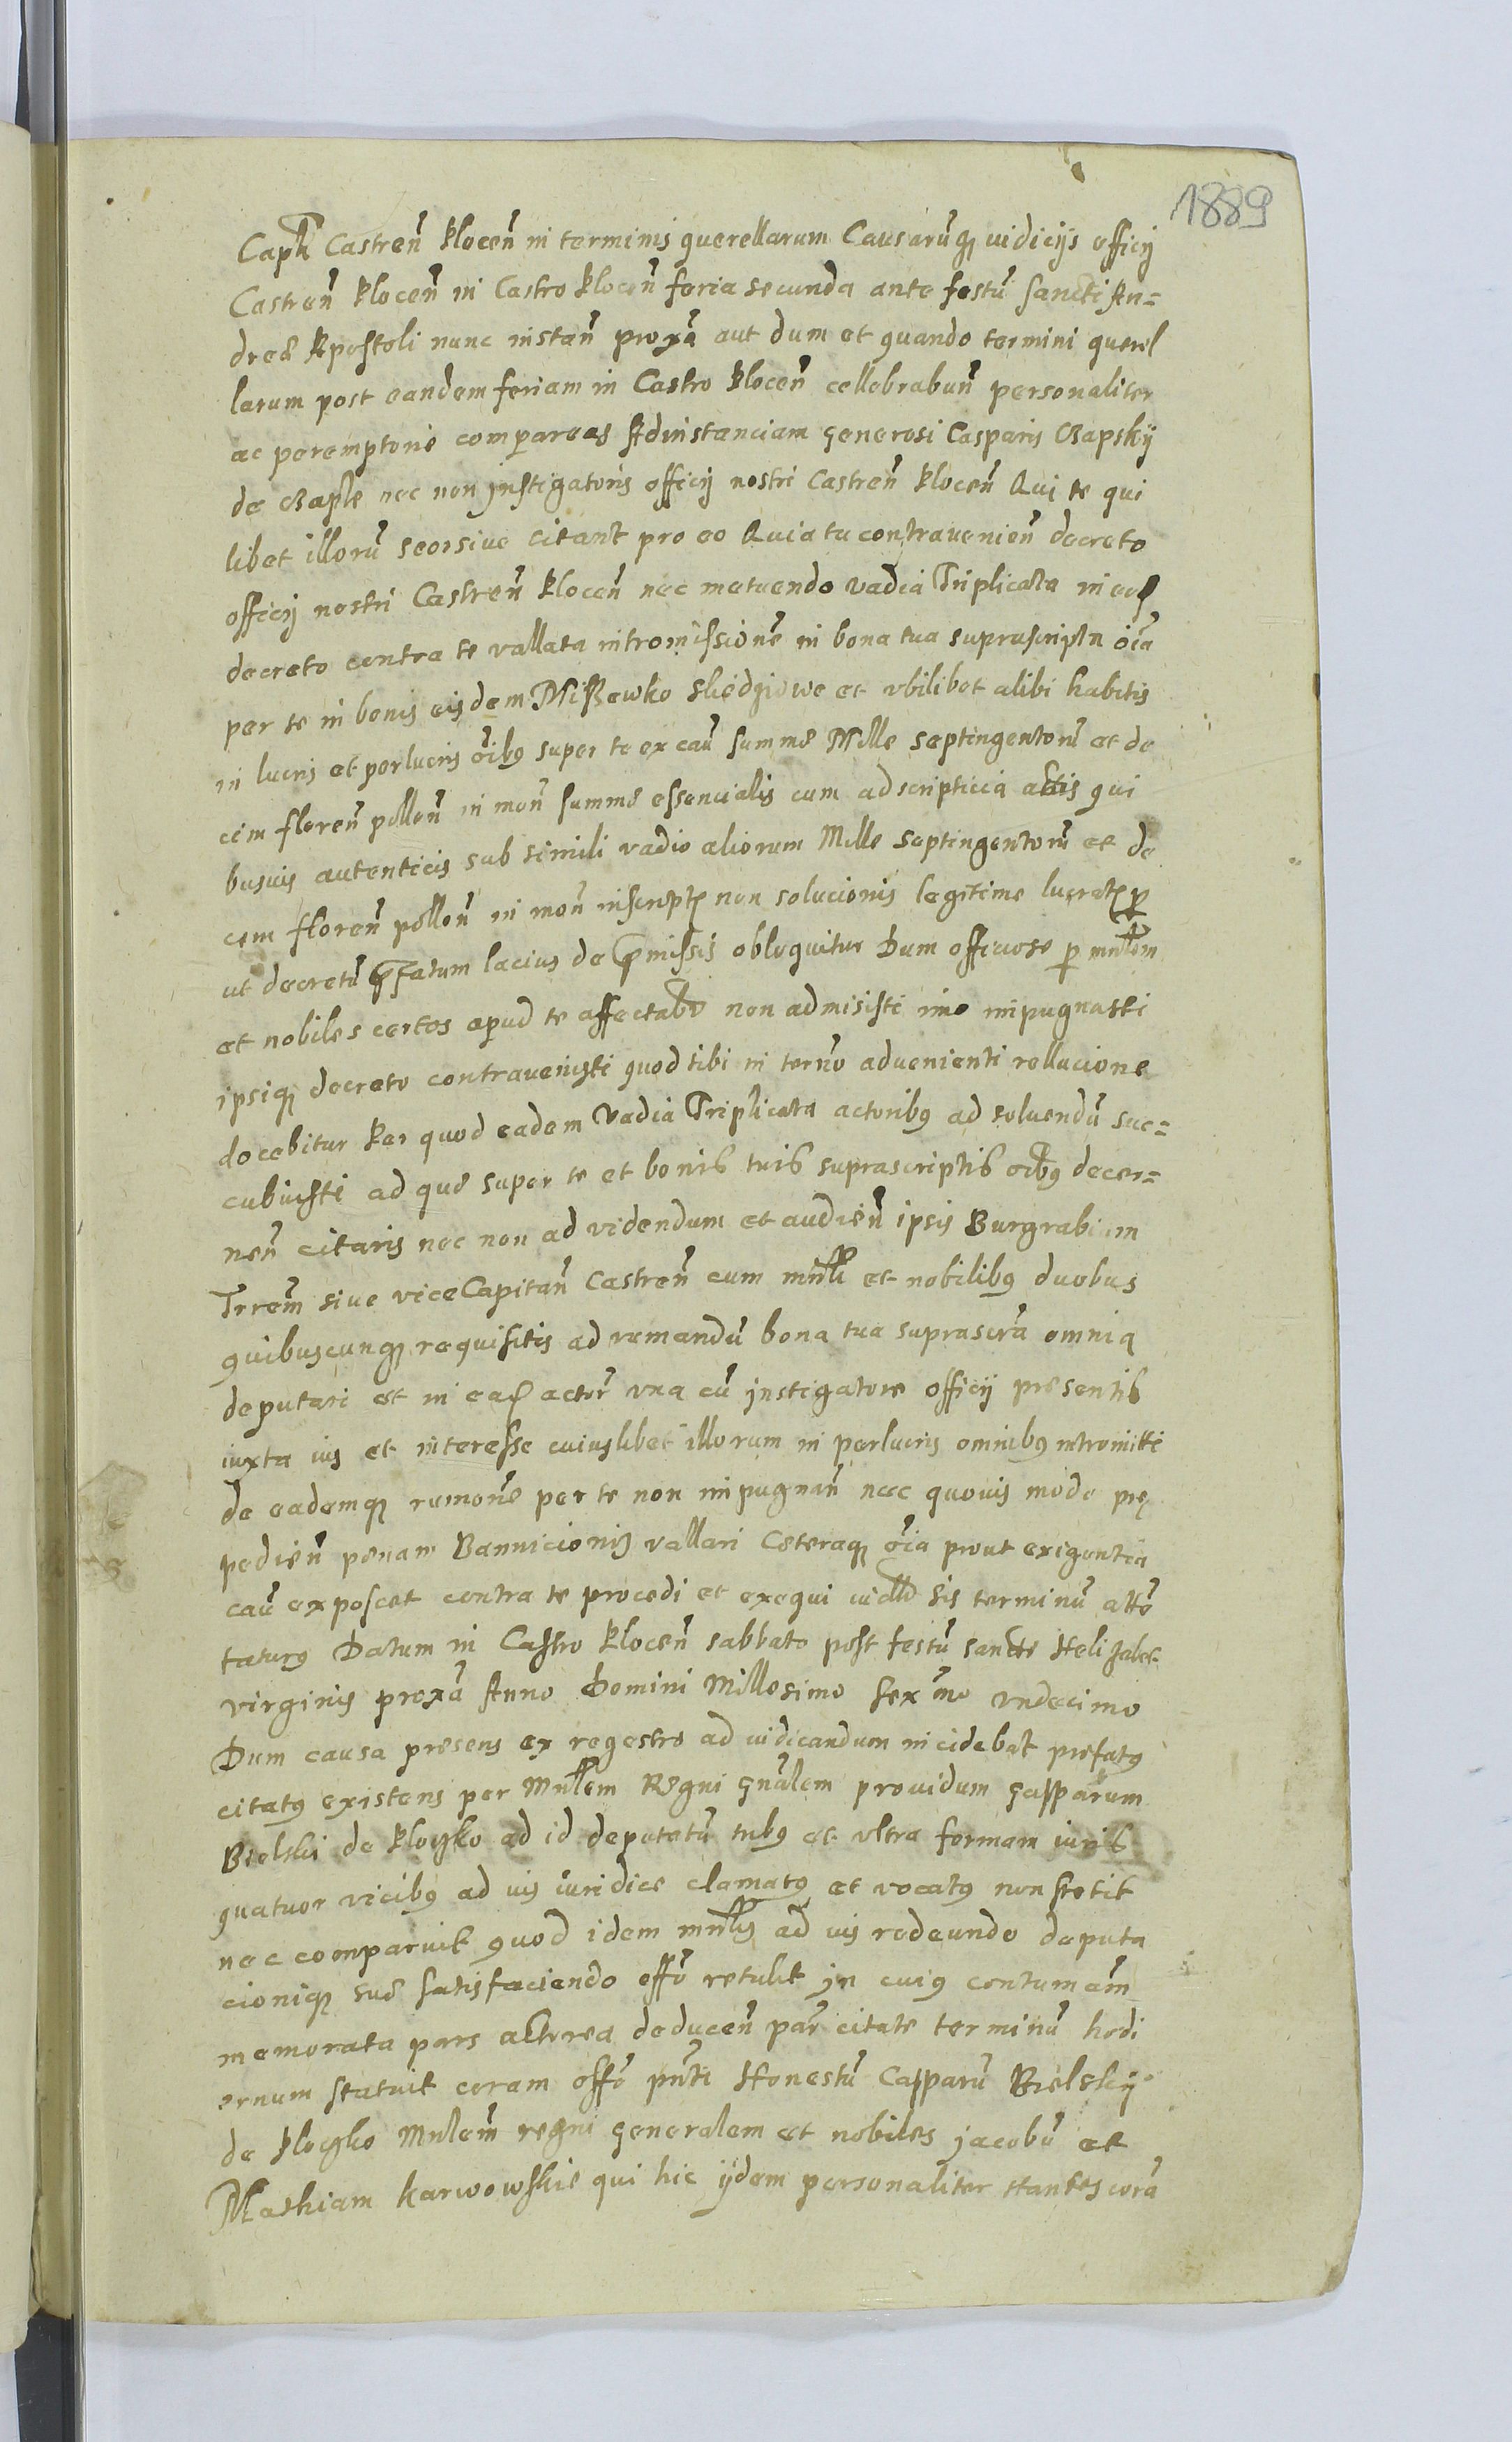 1889
Capłi Castreñ Plocen̄ in terminis querellarum Causarũq3 iudicijs officij
Castren̄ Plocen̄ in Castro Plocen̄ feria secunda ante festũ Sancti An=
dreę Apostoli nunc instan̄ proxã aut dum et quando termini querel
larum post eandem feriam in Castro Plocen̄ cellebrabun̄ personaliter
ac peremptorie compareas Adinstanciam generosi Casparis Czapskij
de Czaple nec non jnstigatoris officij nostri Castren̄ Plocen̄ Qui te qui
libet illorũ seorsiue citant pro eo Quia tu contravenien̄ decreto
officij nostri Castren̄ Plocen̄ nec metuendo vadia Triplicata in eod
decreto contra te vallata intromissionē in bona tua suprascripta oīa
per te in bonis eisdem Miszewko Sledziowe et vbilibet alibi habitis
in lucris et perlucris oībus super te ex cau̅ summę Mille septingentorũ et de
cim floren̄ pollon̄ in mon̄ summę essencialis cum adscripticia actis qui
busuis autenticis sub simili vadio aliorum Mille septingentorũ et de
cem floren̄ pollon̄ in mon̄ inscript non solucionis legitime lucrat p
ut decretũ p̄fatum lacius de p̄missis obloquitur Dum officiose p mnłem
et nobiles certos apud te affectab non admisisti imo impugnasti
ipsiq3 decreto contravenisti quod tibi in terño advenienti rellacione
docebitur Per quod eadem Vadia Triplicata actoribus ad soluendũ suc=
cubuisti ad quę super te et bonis tuis suprascriptis oībus decer=
nen̄ citaris nec non ad videndum et audien̄ ipsis Burgrabium
Trrem̄ siue viceCapitan̄ Castren̄ cum mnłi et nobilibus duobus
quibuscunq3 requisitis ad rumandũ bona tua suprascrã omnia
deputari et in ead actor̄ vna cũ jnstigatore officij presentis
iuxta ius et interesse cuiuslibet illorum in perlucris omnibus intromitti
de eademq3 rumon̄e per te non impugnan̄ nec quouis modo prę
pedien̄ penam Bannicionis vallari Ceteraq3 oīa prout exigentia
cau̅ exposcet contra te procedi et exequi iudłr Sis terminũ atte
taturus Datum in Castro Plocen̄ sabbato post festũ sanctę Helizabet
virginis proxã Anno Domini Millesimo Sexm̄o vndecimo
Dum causa pręsens ex regestro ad iudicandum incidebat prefatus
citatus existens per Mnłem Regni gn̄alem prouidum gasparum
Bielski de Ployzko ad id deputatũ tribus et vltra formam iuris
quatuor vicibus ad ius iuridice clamatus et vocatus non stetit
nec comparuit quod idem mnłis ad ius redeundo deputa
cioniq3 suę satisfaciendo offõ retulit jn cuius contumãm
memorata pars actorea deducen̄ par̄ citatę terminũ hodi
ernum statuit coram offõ pñti Honestũ Casparũ Bielskij
de Ployzko Mnłem̄ regni generalem et nobiles jacobũ et
Mathiam Karwowskie qui hic ijdem personaliter stantes corã